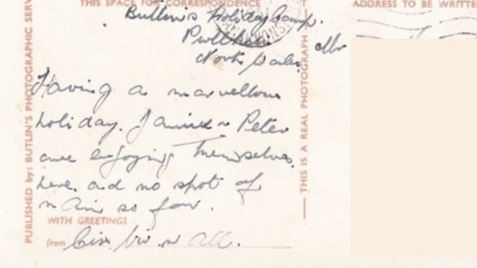 THIS SPACE FOR CORRESPONDENCE
ADDRESS TO BE WRITTEN
Butlin's Holiday Camp.
Pwllheli
North Wales.
Having a marvellous
holiday. & Peter
are enjoying themselves
here. and no spot of
rain so far.
WITH GREETINGS
from all.
PUBLISHED by: BUTLIN'S PHOTOGRAPHIC SERV
THIS IS A REAL PHOTOGRAPH